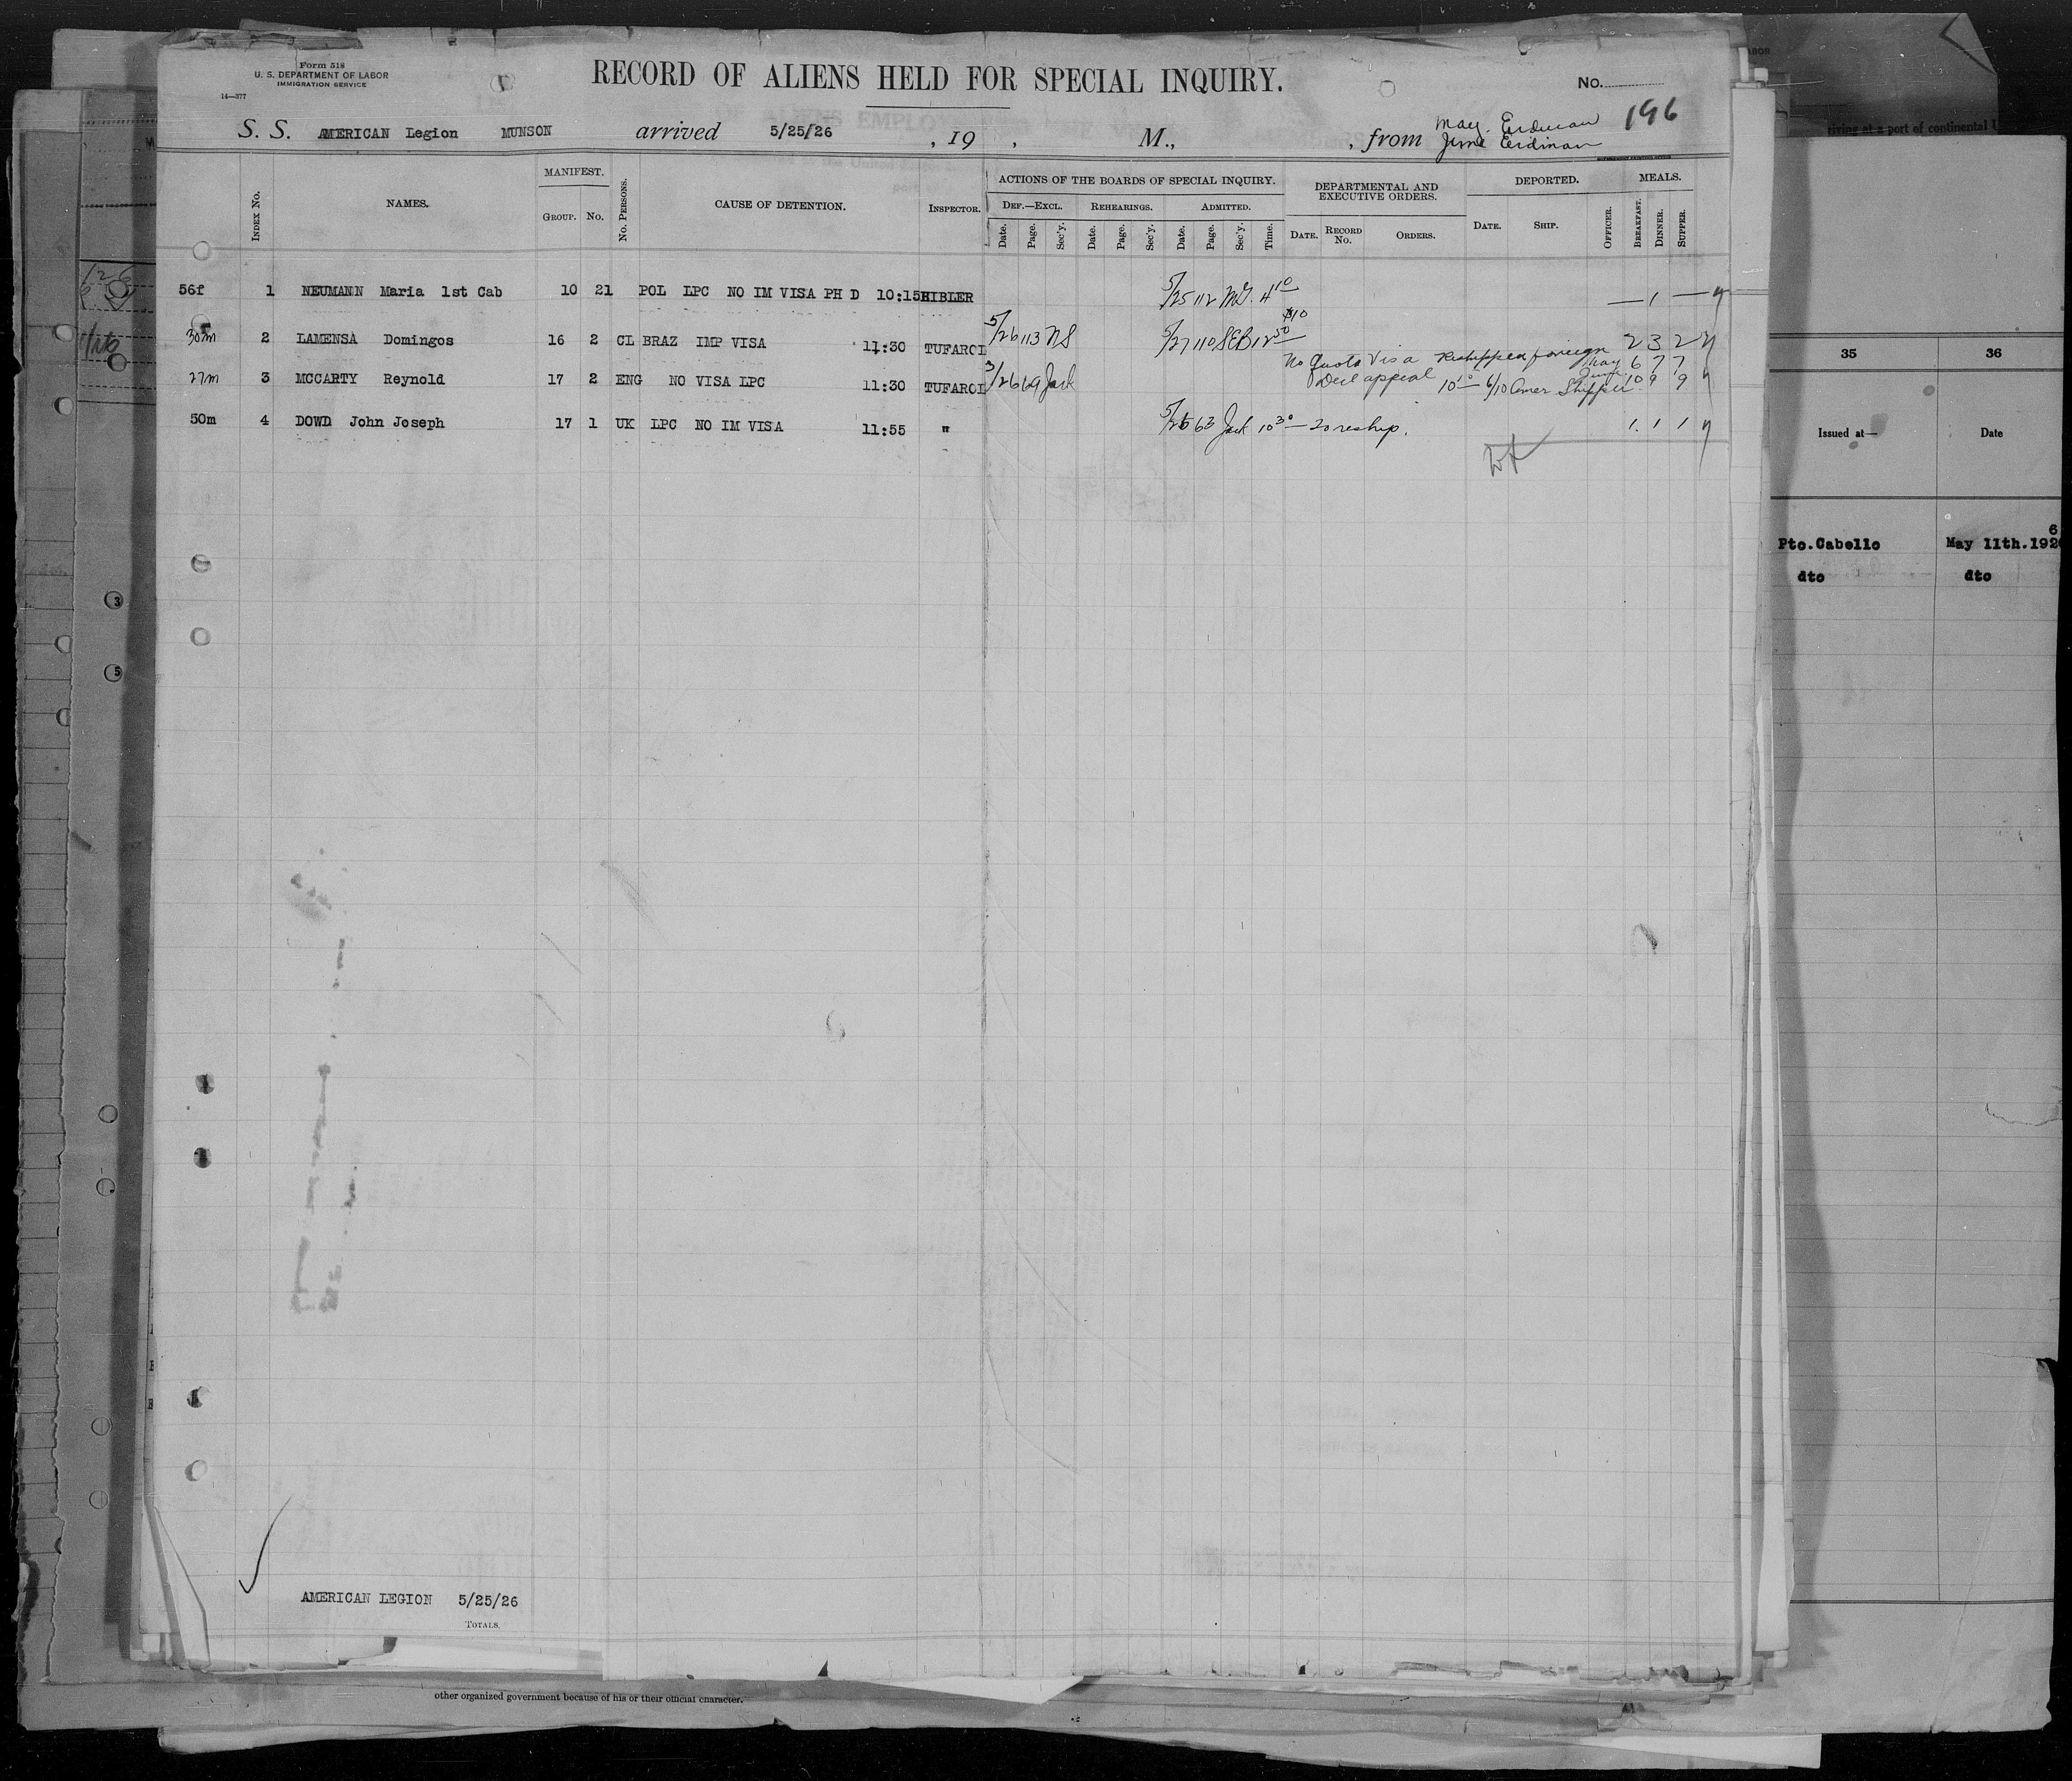 Form 518
U. S. DEPARTMENT OF LABOR
IMMIGRATION SERVICE
14—377
RECORD OF ALIENS HELD FOR SPECIAL INQUIRY.
No.
196
S. S. AMERICAN Legion MUNSON arrived 5/25/26 , 19 , M., , from May. Erdman
June Erdman
INDEX No.
NAMES.
MANIFEST.
GROUP. No.
No. PERSONS.
CAUSE OF DETENTION.
INSPECTOR.
ACTIONS OF THE BOARDS OF SPECIAL INQUIRY.
DEF.—EXCL. REHEARINGS. ADMITTED.
Date. Page. Sec'y. Date. Page. Sec'y. Date. Page. Sec'y. Time.
DEPARTMENTAL AND
EXECUTIVE ORDERS.
DATE. RECORD No. ORDERS.
DEPORTED.
DATE. SHIP.
OFFICER.
MEALS.
BREAKFAST. DINNER. SUPPER.
56f 1 NEUMANN Maria 1st Cab 10 21 POL LPC NO IM VISA PH D 10:15 HIBLER 5/25 112 4 10 — 1 —
30m 2 LAMENSA Domingos 16 2 CL BRAZ IMP VISA 11:30 TUFAROL 5/26 113 NS 5/27 110 SEB 12 50 2 3 2
No Quota Visa Reshipped foreign May 6 7 7
27m 3 MCCARTY Reynold 17 2 ENG NO VISA LPC 11:30 TUFAROL 69 Jack Decl appeal 10 10 6/10 Amer Shipper June 10 9 9
50m 4 DOWD John Joseph 17 1 UK LPC NO IM VISA 11:55 " 63 Jack 10 30 — reship. 1 1 1
AMERICAN LEGION 5/25/26
TOTALS.
other organized government because of his or their official character.
riving at a port of continental
35 36
Issued at— Date
Pto.Cabello May 11th.1926
dto dto
3
5